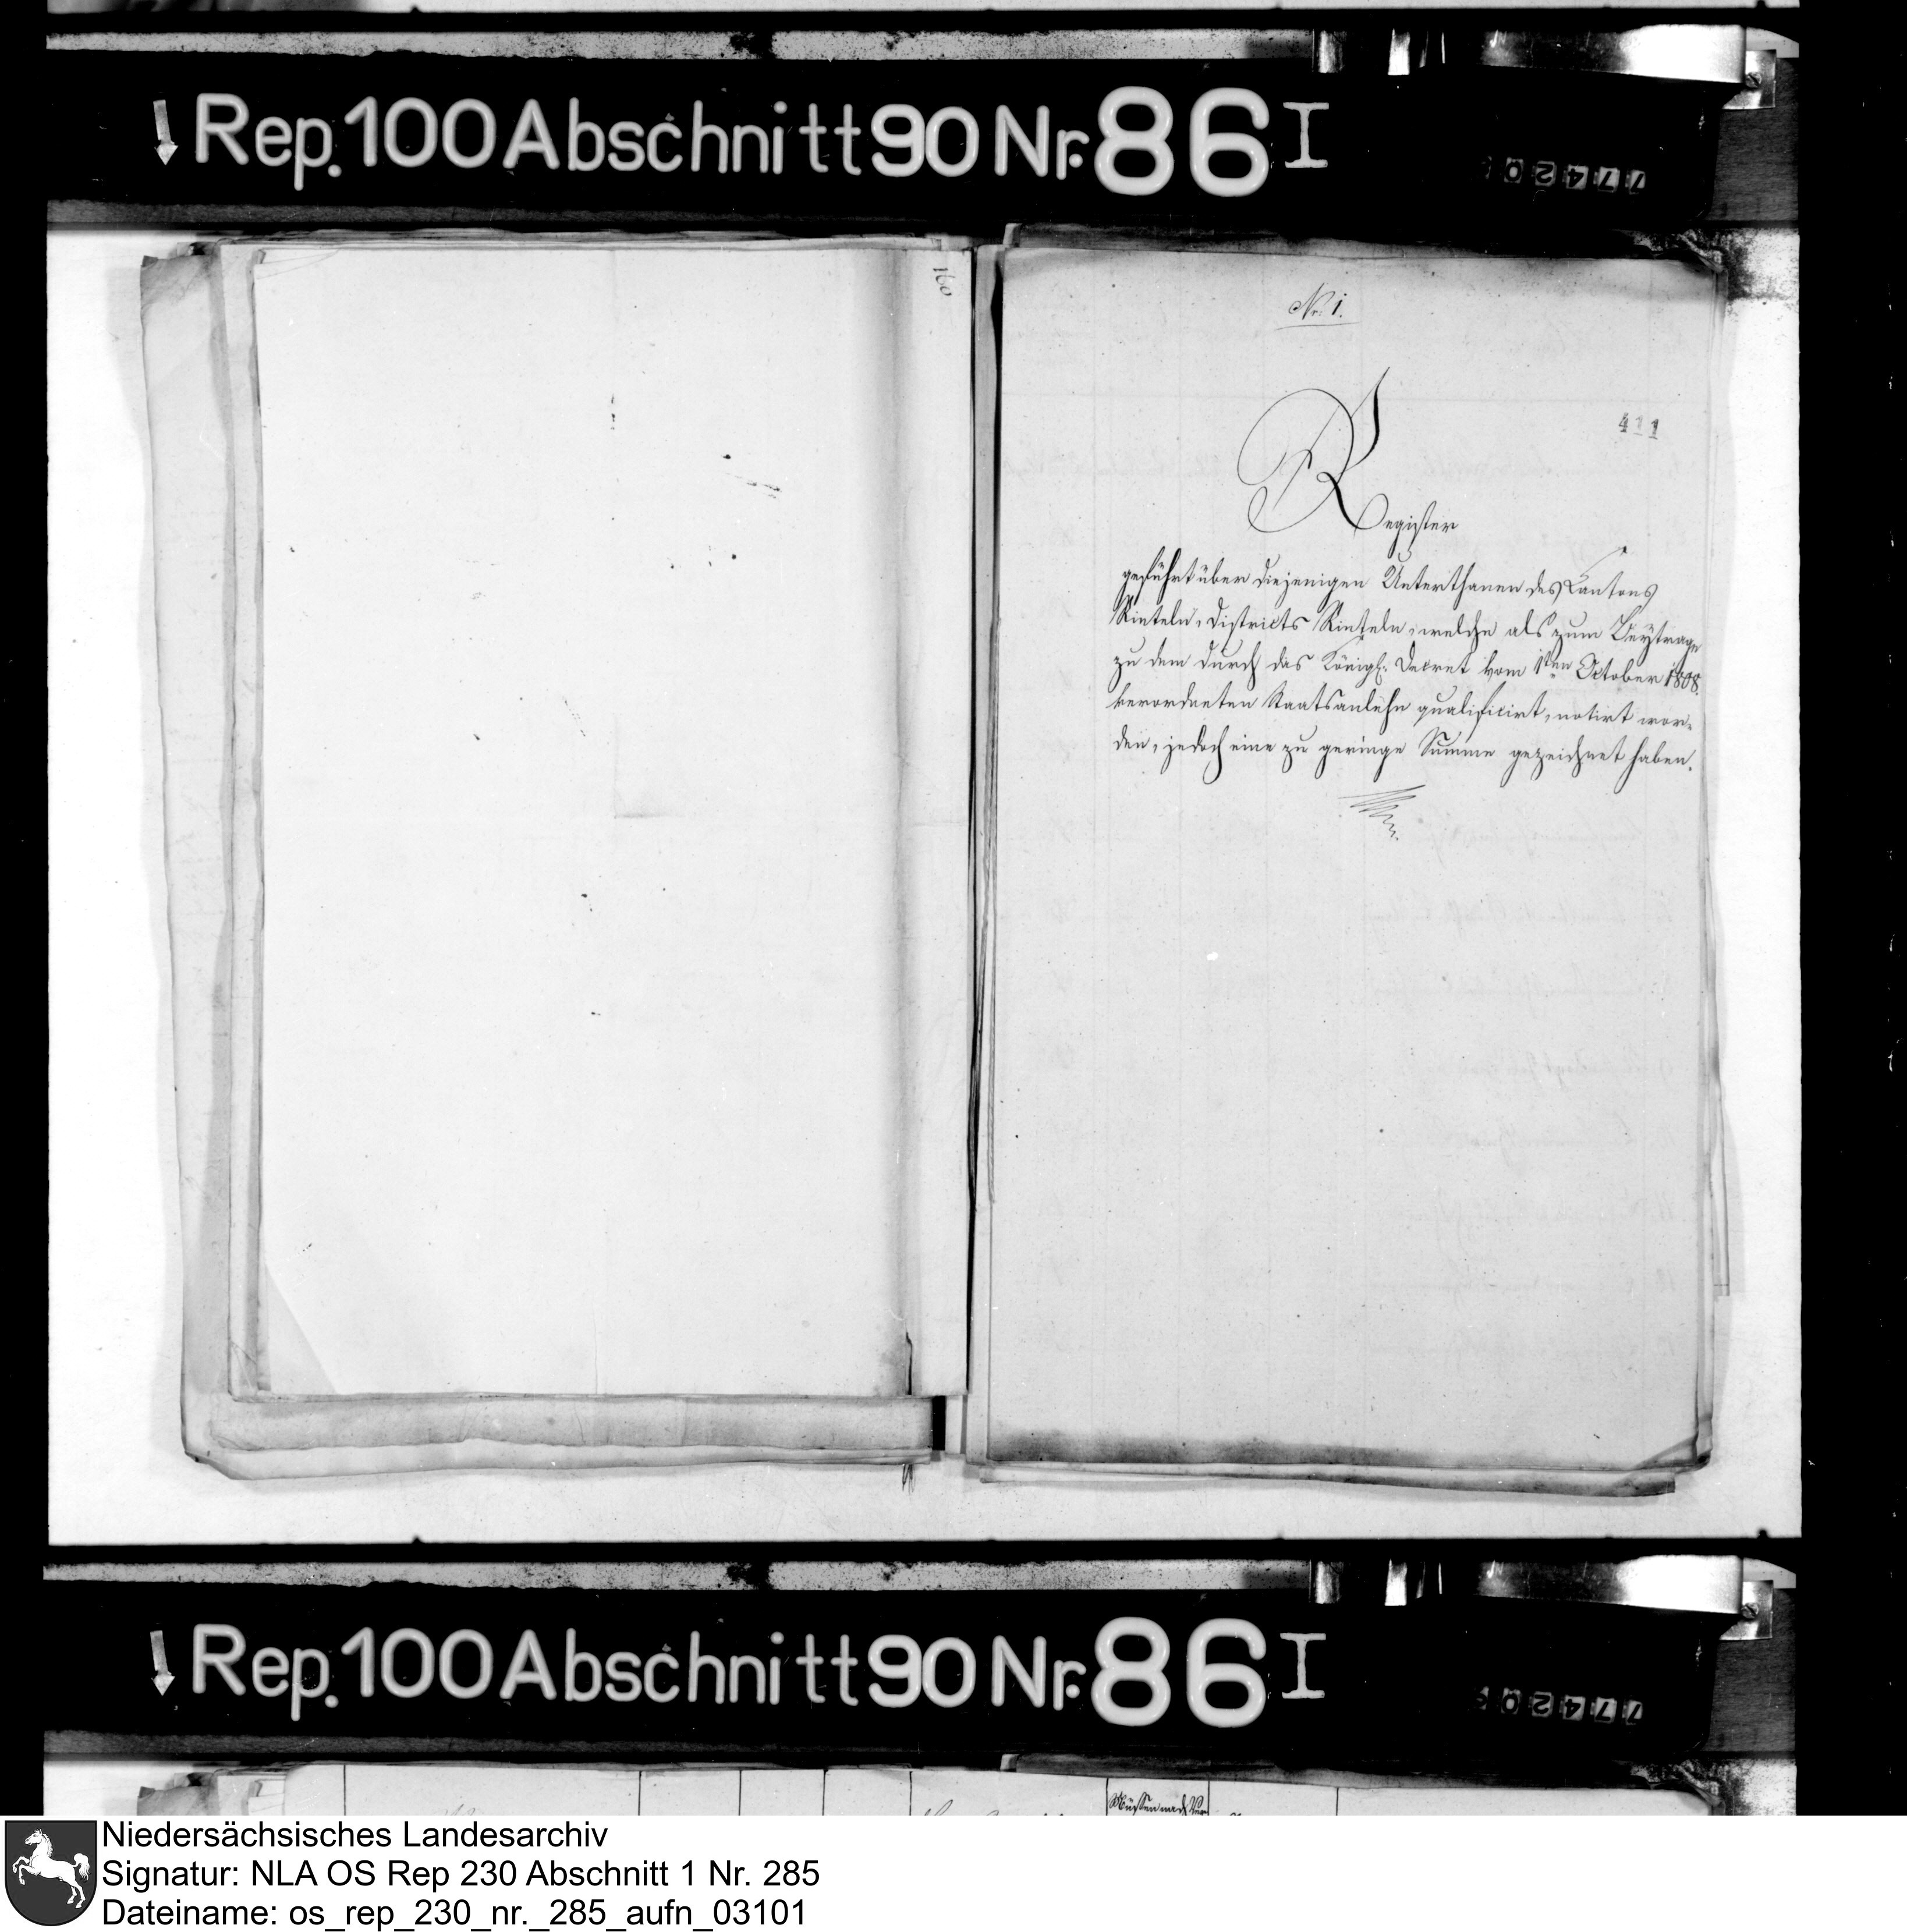 Rep. 100 Abschnitt 90 Nr. 86 I
77420
160
Nr. 1.
411
Register
geführt über diejenigen Unterthanen des Cantons
Rinteln, Districts Rinteln, welche als zum Beytrage
zu dem durch das Königl. Decret vom 1ten October 1808.
verordneten Staatsanlehn qualificirt, notirt wor-
den, jedoch eine zu geringe Summe gezeichnet haben.
Rep. 100 Abschnitt 90 Nr. 86 I
77420
Müssen nach
Niedersächsisches Landesarchiv
Signatur: NLA OS Rep 230 Abschnitt 1 Nr. 285
Dateiname: os_rep_230_nr._285_aufn_03101